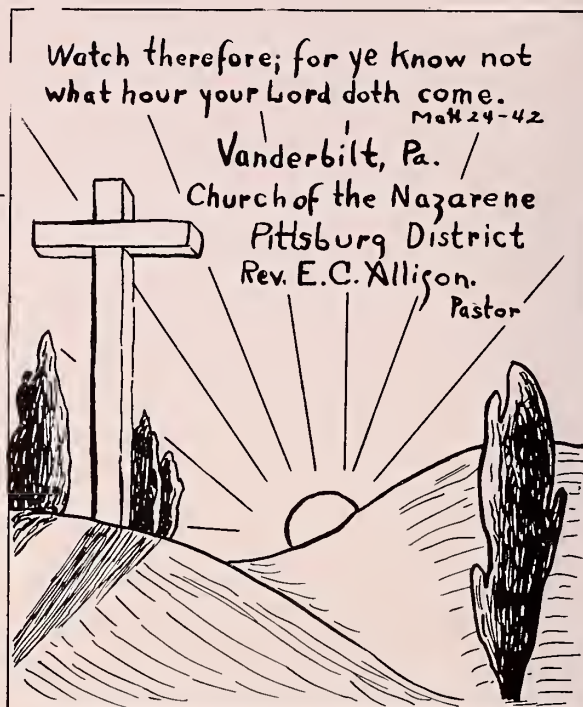 Watch therefore; for ye Know not
what hour your Lord doth come.
Matt 24-42
Vanderbilt, Pa.
Church of the Nazarene
Pittsburg District
Rev. E.C. Allison.
Pastor